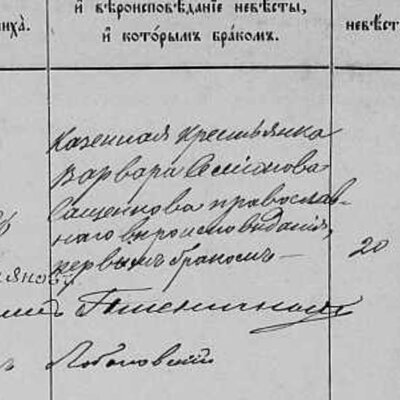 и҆ вѣроисповѣданіе невѣсты,
и҆ кото́рымъ бра́комъ.
ниха̀.
невѣст
Казенная крестьянка
Варвара Семенова
Сащенкова православ-
наго вѣроисповѣданія,
первымъ бракомъ —
20
Пшеничной
Лобановскій